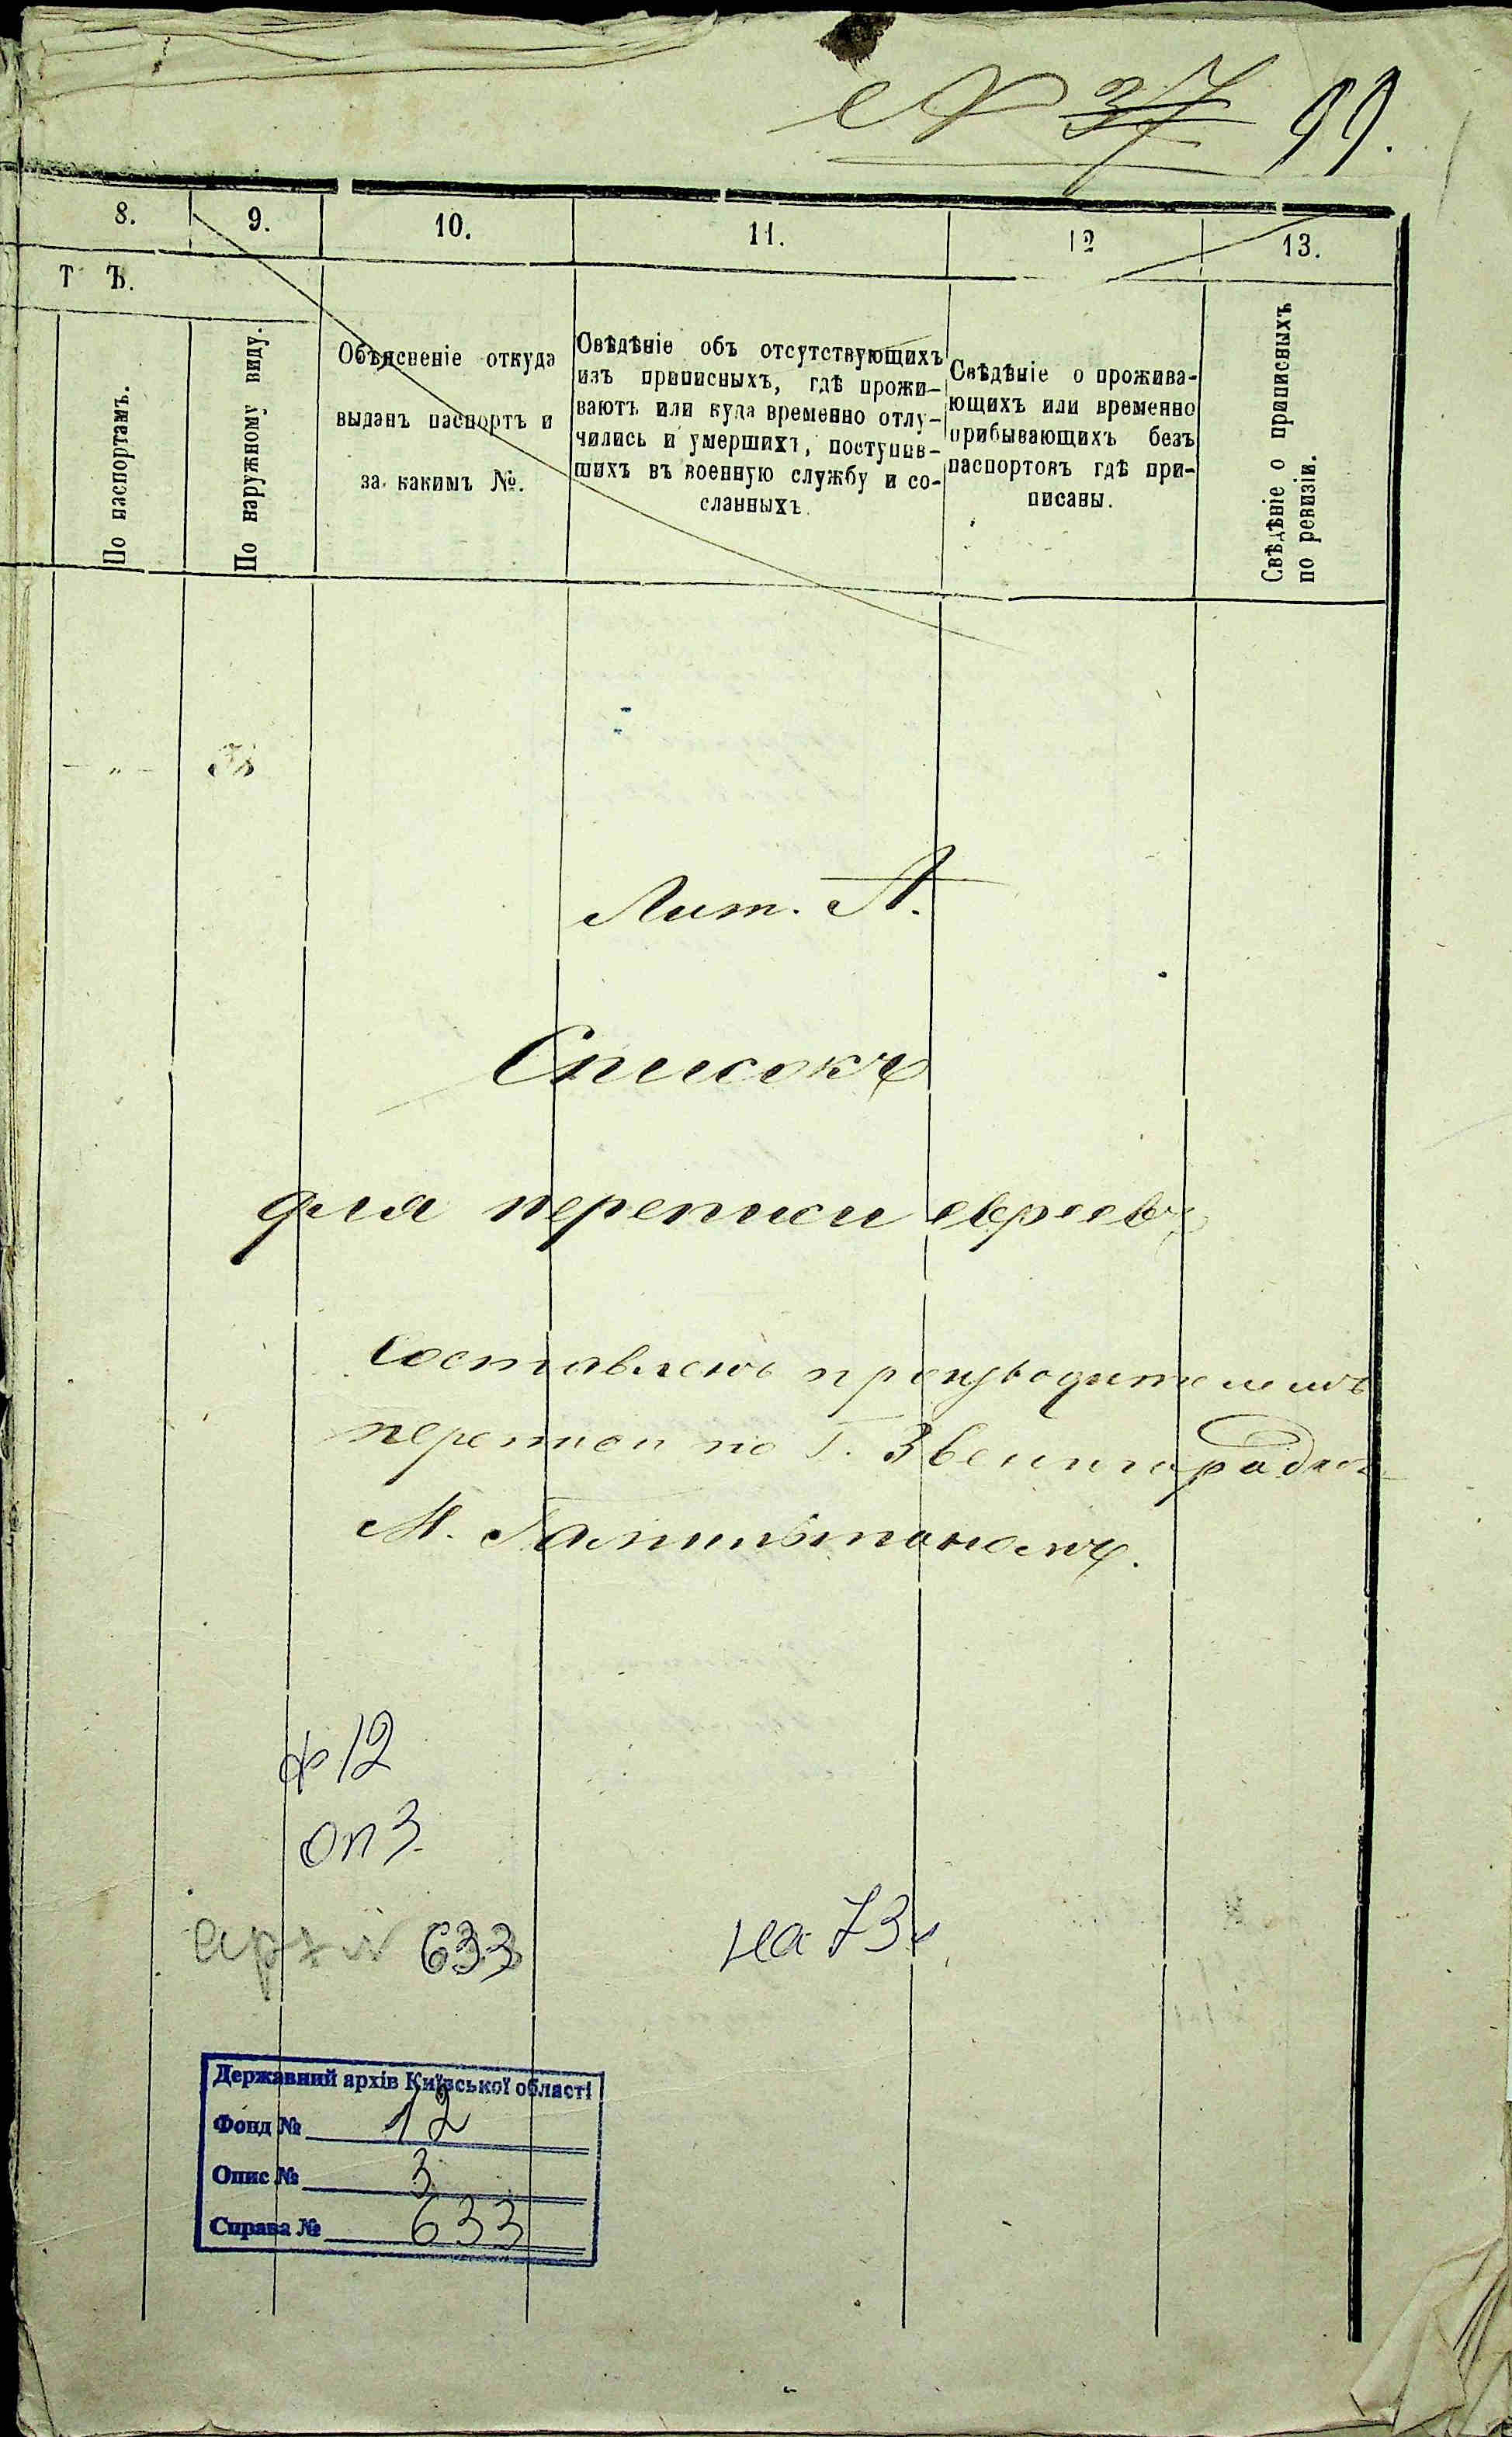 № 37 99.
8. 9. 10. 11. 12 13.
Т Ъ.
По паспортамъ.
По наружному виду.
Объясненіе откуда
выданъ паспортъ и
за какимъ №.
Свѣдѣніе объ отсутствующихъ
изъ приписныхъ, гдѣ прожи-
ваютъ или куда временно отлу-
чились и умершихъ, поступив-
шихъ въ военную службу и со-
сланныхъ.
Свѣдѣніе о прожива-
ющихъ или временно
прибывающихъ безъ
паспортовъ гдѣ при-
писаны.
Свѣдѣніе о приписныхъ
по ревизіи.
— „ —
Лит. А.
Списокъ
для переписи евреевъ
Составленъ производителемъ
переписи по Г. Звенигородкѣ
М.
ф 12
оп 3
арх 633
на 73 л
Державний архів Київської області
Фонд № 12
Опис № 3
Справа № 633